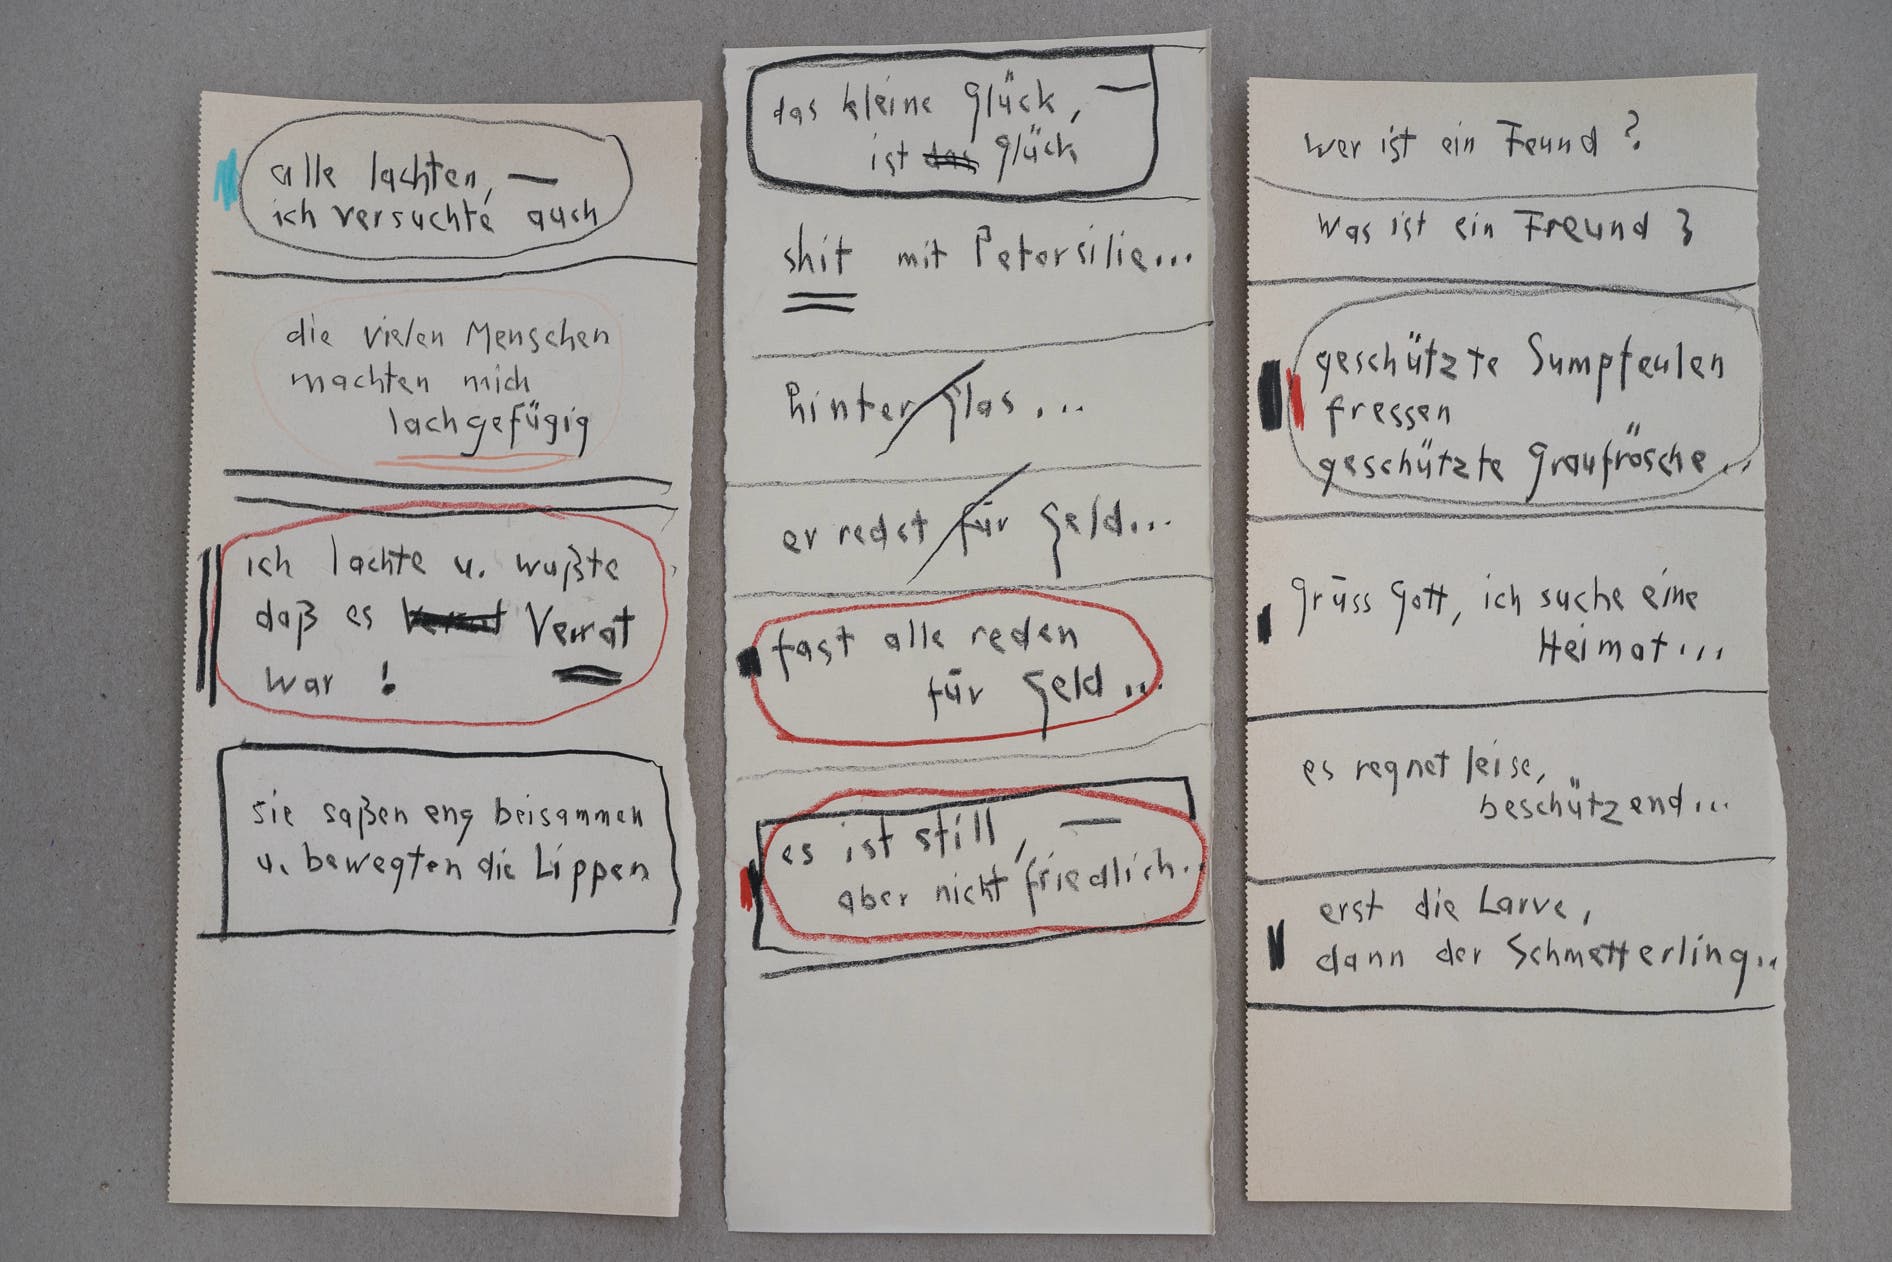 alle lachten, —
ich versuchte auch
die vielen Menschen
machten mich
lachgefügig
ich lachte u. wußte
daß es Verrat Verrat
war !
sie saßen eng beisammen
u. bewegten die Lippen
das kleine Glück, —
ist das Glück
shit mit Petersilie...
hinter Glas...
er redet für Geld...
fast alle reden
für Geld...
es ist still, —
aber nicht friedlich..
wer ist ein Feund ?
Was ist ein Freund ?
geschützte Sumpfeulen
fressen
geschützte Graufrösche...
Grüss Gott, ich suche eine
Heimat...
es regnet leise,
beschützend...
erst die Larve,
dann der Schmetterling..